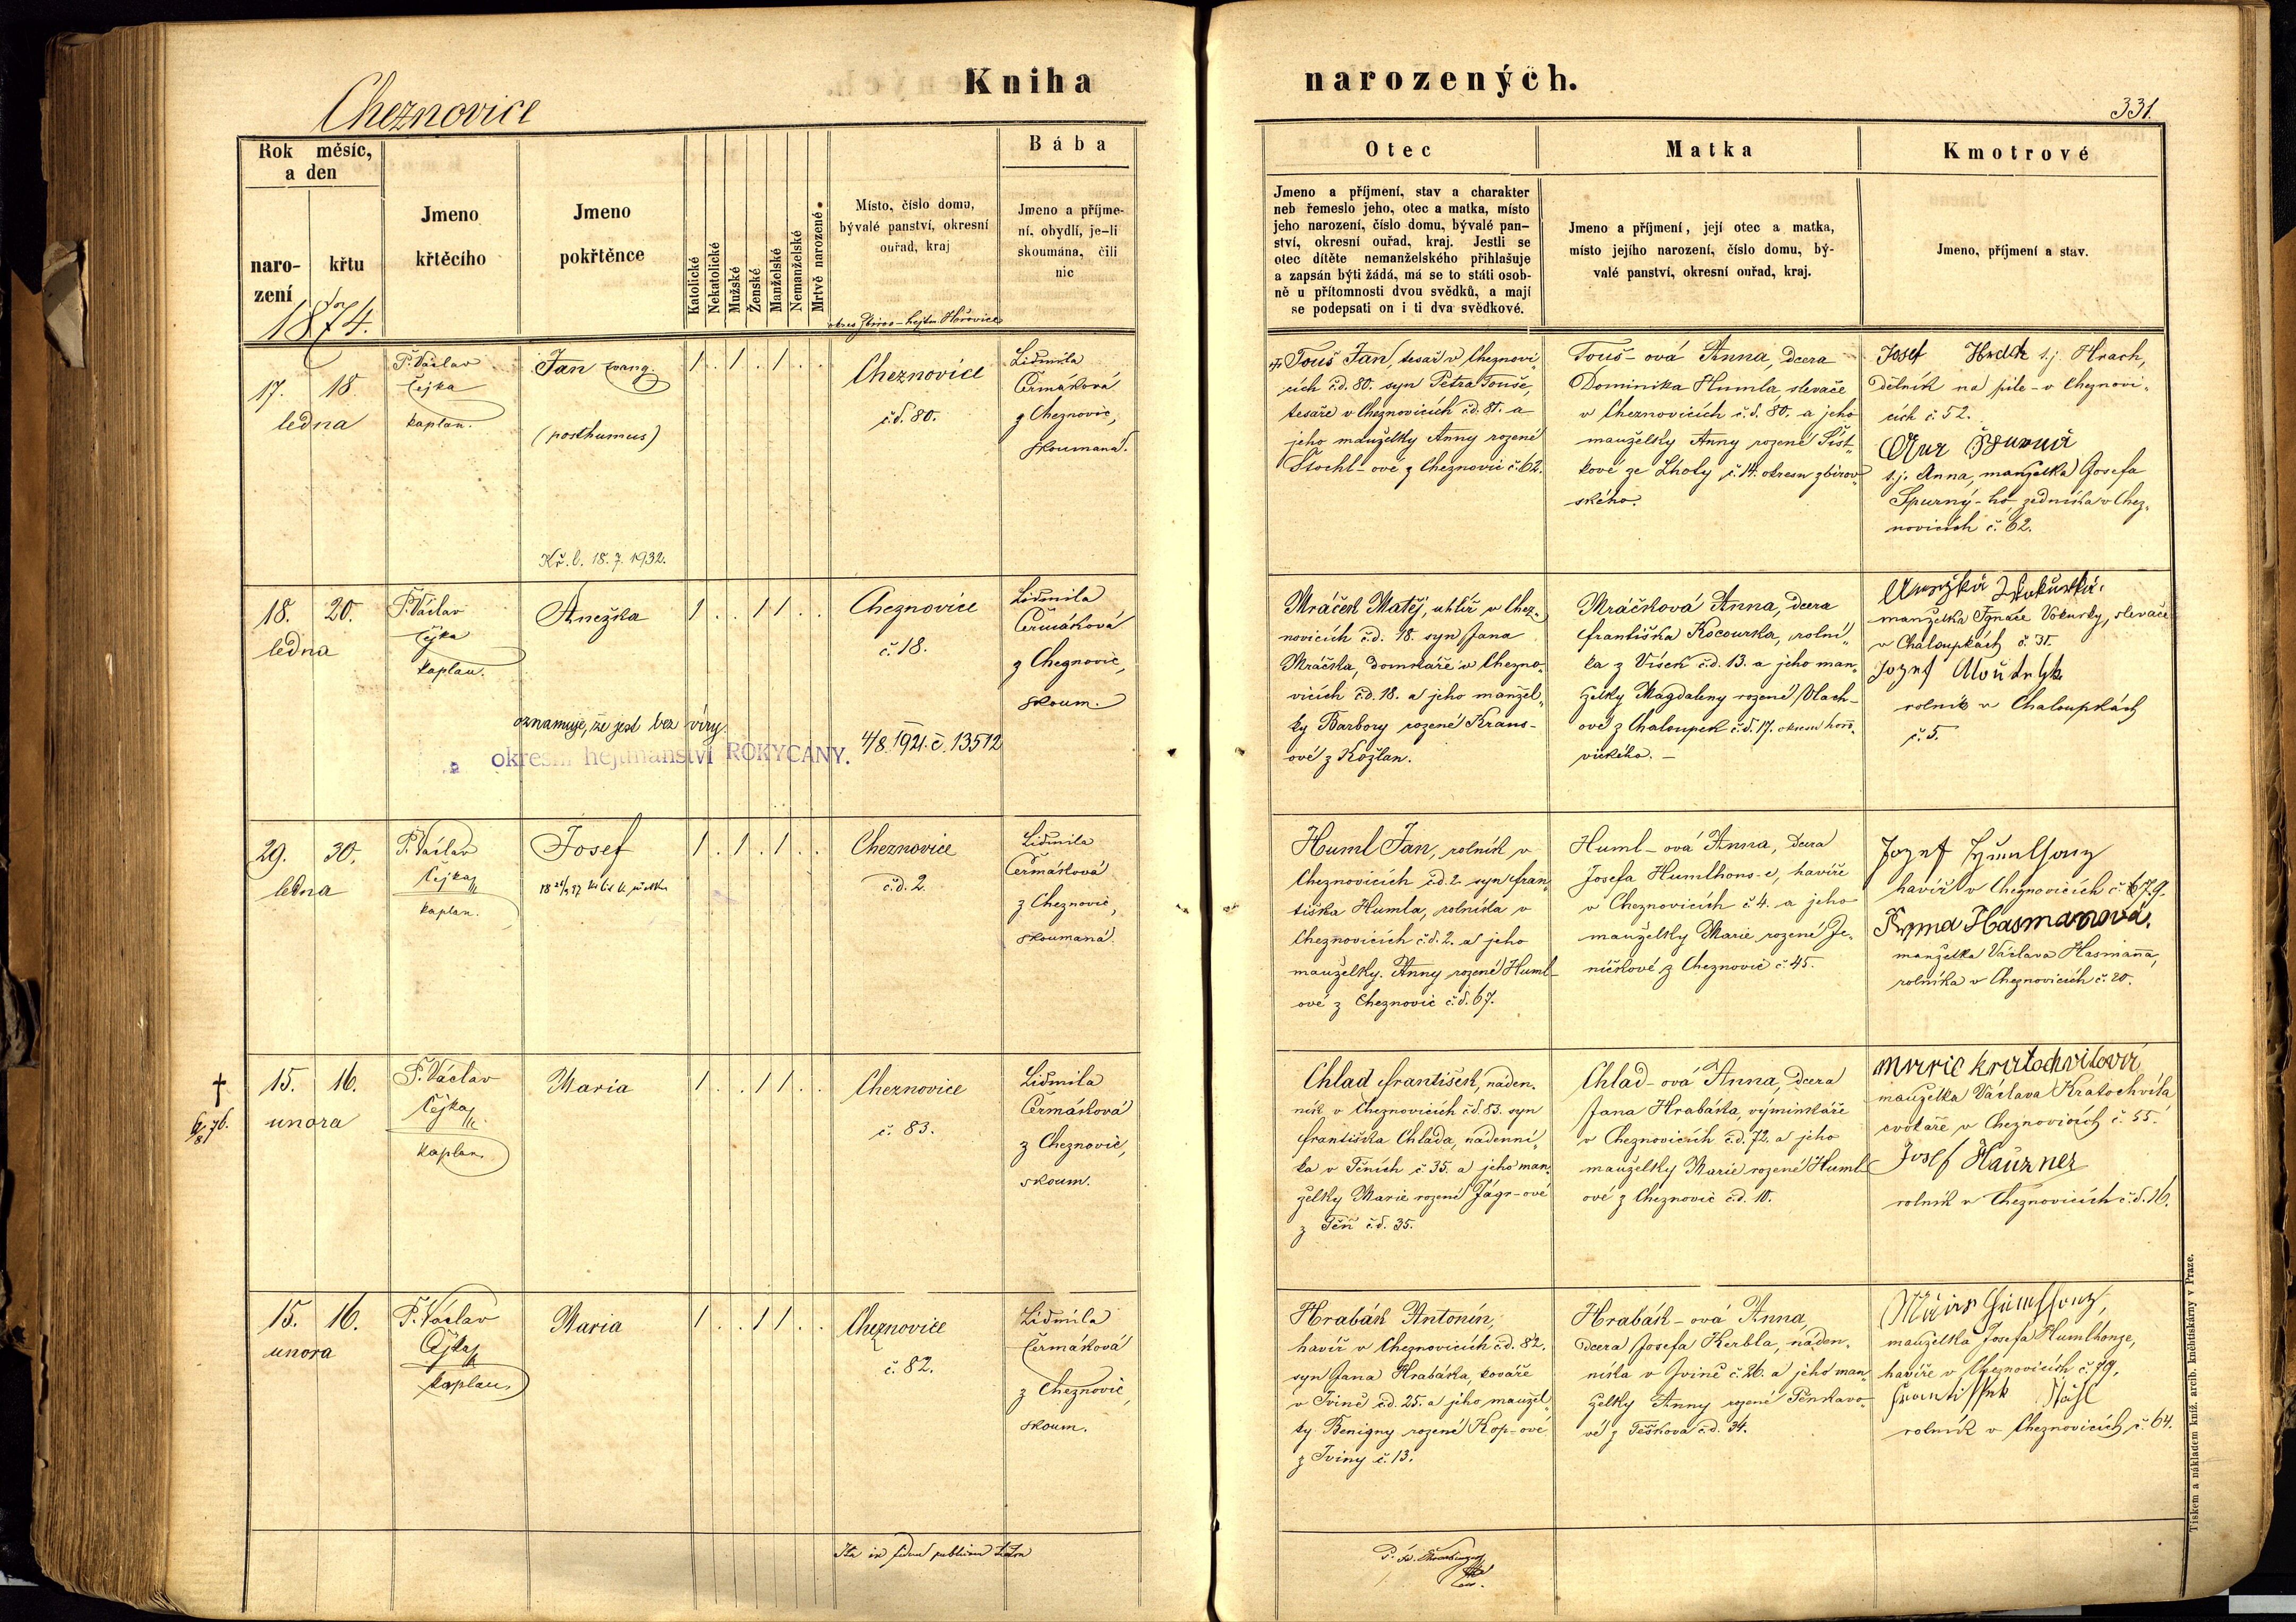 Kniha narozených.
Cheznovice
331.
Rok měsíc,
a den
naro-
zení
křtu
1874.
Jmeno
křtěcího
Jmeno
pokřtěnce
Katolické
Nekatolické
Mužské
Ženské
Manželské
Nemanželské
Mrtvě narozené
Místo, číslo domu,
bývalé panství, okresní
ouřad, kraj
Bába
Jmeno a příjme-
ní, obydlí, je-li
skoumána, čili
nic
Otec
Jmeno a příjmení, stav a charakter
neb řemeslo jeho, otec a matka, místo
jeho narození, číslo domu, bývalé pan-
ství, okresní ouřad, kraj. Jestli se
otec dítěte nemanželského přihlašuje
a zapsán býti žádá, má se to státi osob-
ně u přítomnosti dvou svědků, a mají
se podepsati on i ti dva svědkové.
Matka
Jmeno a příjmení, její otec a matka,
místo jejího narození, číslo domu, bý-
valé panství, okresní ouřad, kraj.
Kmotrové
Jmeno, příjmení a stav.
17. 18.
ledna
P. Václav
Čejka
kaplan.
Jan
(posthumus)
Kř. l. 18. 7. 1932.
1 . 1 . 1 . .
Cheznovice
č.d. 80.
Lidmila
Čermáková
z Cheznovic,
skoumaná.
Touš Jan, tesař v Cheznovi-
cích č.d. 80. syn Petra Touše,
tesaře v Cheznovicích č.d. 81. a
jeho manželky Anny rozené
Štochl-ové z Cheznovic č. 62.
Touš-ová Anna, dcera
Dominika Humla, slevače
v Cheznovicích č.d. 80. a jeho
manželky Anny rozené Šišt-
kové ze Lhoty č. 14. okresu zbirov-
ského.
Josef Hrach t.j. Hrach,
dělník na pile v Cheznovi-
cích č. 52.
t.j. Anna, manželka Josefa
Spurný-ho, zedníka v Chez-
novicích č. 62.
18. 20.
ledna
P. Václav
Čejka
kaplan.
Anežka
oznamuje, že jest bez víry.
okresní hejtmanství ROKYCANY.
4/8. 1921. č. 13512
1 . . 1 1 . .
Cheznovice
č. 18.
Lidmila
Čermáková
z Cheznovic,
skoum.
Mráček Matěj, uhlíř v Chez-
novicích č.d. 18. syn Jana
Mráčka, domkáře v Chezno-
vicích č.d. 18. a jeho manžel-
ky Barbory rozené Kraus-
ové z Kožlan.
Mráčková Anna, dcera
Františka Kocourka, rolní-
ka z Vísek č.d. 13. a jeho man-
želky Magdaleny rozené Vlach-
ové z Chaloupek č.d. 17. okresu hořo-
vického. –
manželka Ignáce Vokurky, slevače
v Chaloupkách č. 31.
rolník v Chaloupkách
č. 5.
29. 30.
ledna
P. Václav
Čejka
kaplan.
Josef
1 . 1 . 1 . .
Cheznovice
č.d. 2.
Lidmila
Čermáková
z Cheznovic,
skoumaná.
Huml Jan, rolník v
Cheznovicích č.d. 2. syn Fran-
tiška Humla, rolníka v
Cheznovicích č.d. 2. a jeho
manželky Anny rozené Huml-
ové z Cheznovic č.d. 67.
Huml-ová Anna, dcera
Josefa Humlhons-e, havíře
v Cheznovicích č. 4. a jeho
manželky Marie rozené Je-
níčkové z Cheznovic č. 45.
havíř v Cheznovicích č. 79.
Anna Hasmanová.
manželka Václava Hasmanna,
rolníka v Cheznovicích č. 20.
†
15. 16.
unora
P. Václav
Čejka
kaplan.
Maria
1 . . 1 1 . .
Cheznovice
č. 83.
Lidmila
Čermáková
z Cheznovic,
skoum.
Chlad František, náden-
ník v Cheznovicích č.d. 83. syn
Františka Chlada, nádenní-
ka v Těních č. 35. a jeho man-
želky Marie rozené Jágr-ové
z Těň č.d. 35.
Chlad-ová Anna, dcera
Jana Hrabáka, výminkáře
v Cheznovicích č.d. 72. a jeho
manželky Marie rozené Huml-
ové z Cheznovic č.d. 10.
Marie Kratochvilová
manželka Václava Kratochvíla
cvokaře v Cheznovicích č. 55.
Josef Hauzner
rolník v Cheznovicích č.d. 16.
15. 16.
unora
P. Václav
Čejka
kaplan
Maria
1 . . 1 1 . .
Cheznovice
č. 82.
Lidmila
Čermáková
z Cheznovic,
skoum.
Hrabák Antonín,
havíř v Cheznovicích č.d. 82.
syn Jana Hrabáka, kováře
v Jvině č.d. 25. a jeho manžel-
ky Benigny rozené Kop-ové
z Jviny č. 13.
Hrabák-ová Anna,
dcera Josefa Kerbla, náden-
níka v Jvině č. 26. a jeho man-
želky Anny rozené Pěnkavo-
vé z Těškova č.d. 34.
manželka Josefa Humlhonze,
havíře v Cheznovicích č. 79.
rolník v Cheznovicích č. 64.
Tiskem a nákladem kníž. arcib. kněhtiskárny v Praze.